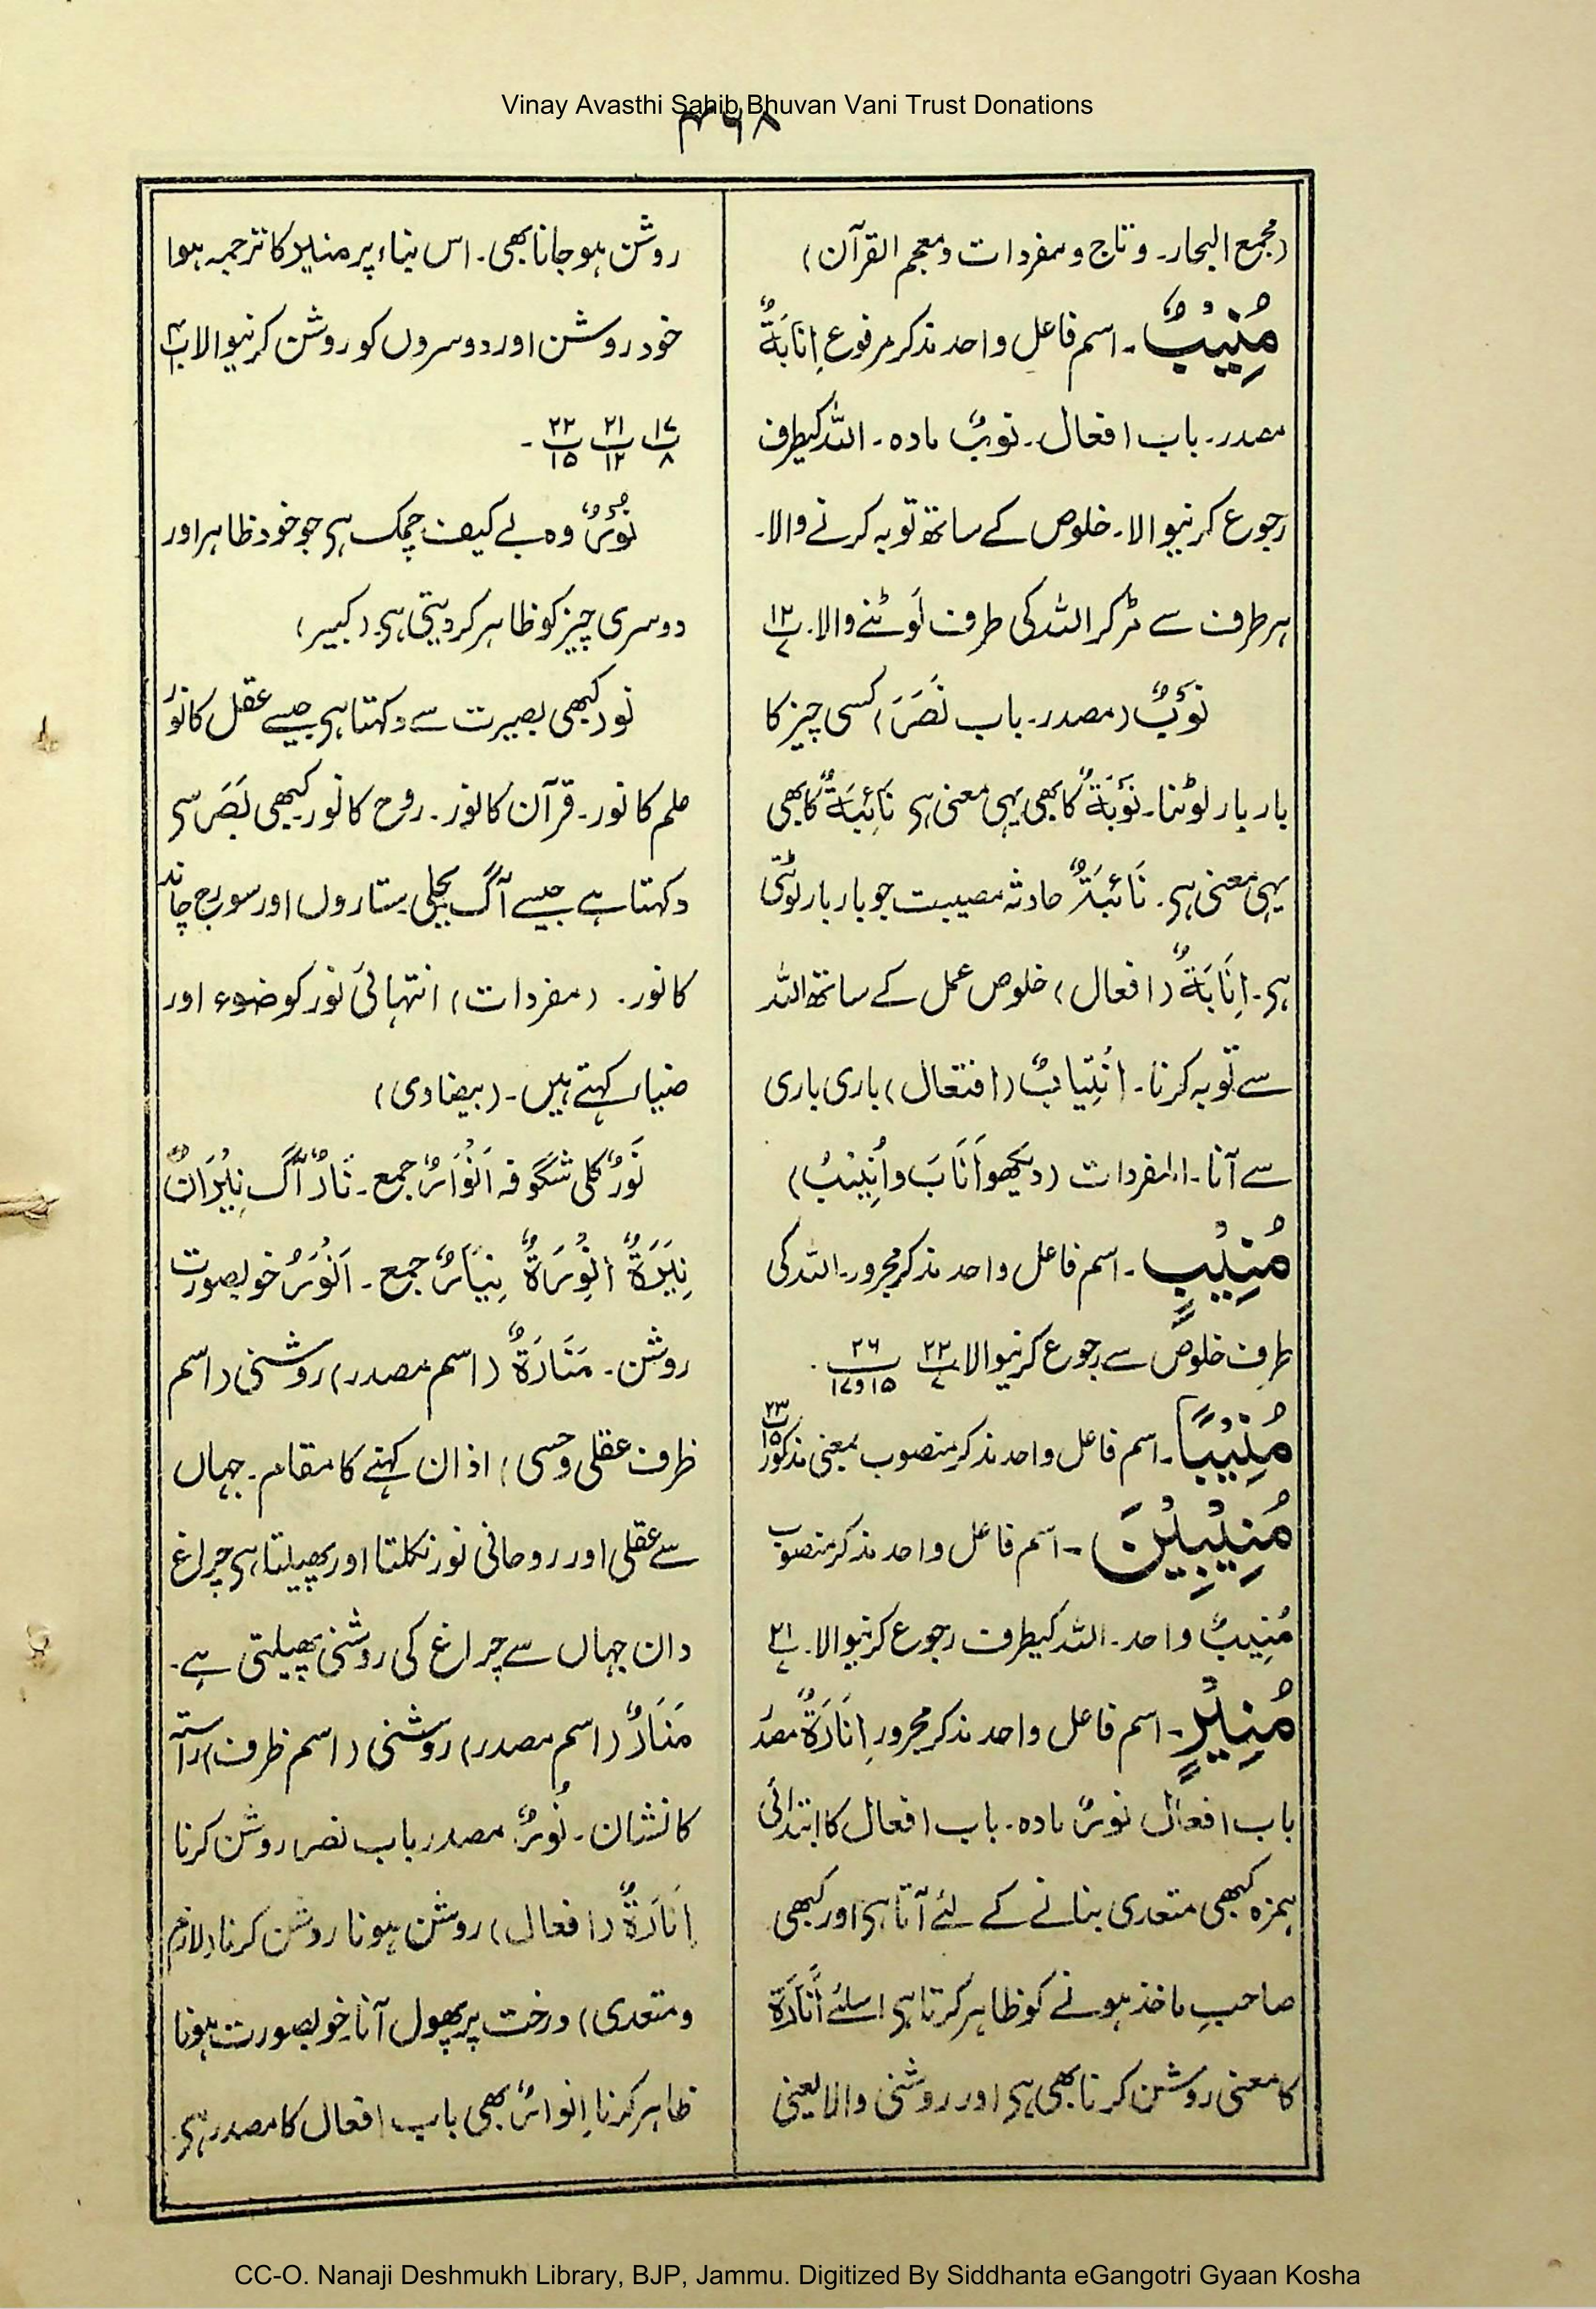 Vinay Avasthi Sahib Bhuvan Vani Trust Donations
۴۶۸
(مجمع البحار۔ و تاج و مفردات و معجم القرآن)
مُنِیْبٌ۔ اسم فاعل واحد مذکر مرفوع اِنَابَۃٌ
مصدر۔ باب افعال۔ نوبٌ مادہ۔ اللہ کیطرف
رجوع کرنیوالا۔ خلوص کے ساتھ توبہ کرنے والا۔
ہر طرف سے مڑ کر اللہ کی طرف لَوٹنے والا۔ پ ۱۲ ۷
نَوْبٌ (مصدر۔ باب نَصَرَ) کسی چیز کا
بار بار لوٹنا۔ نَوْبَۃٌ کا بھی یہی معنی ہی نَائِبَۃٌ کا بھی
یہی معنی ہی۔ نَائبَۃٌ حادثہ مصیبت جو بار بار لوٹتی
ہی۔ اِنَابَۃٌ (افعال) خلوص عمل کے ساتھ اللہ
سے توبہ کرنا۔ اِنْتِیابٌ (افتعال) باری باری
سے آنا۔ المفردات (دیکھو اَنَابَ و اُنِیْبُ)
مُنِیْبٍ۔ اسم فاعل واحد مذکر مجرور۔ اللہ کی
طرف خلوص سے رجوع کرنیوالا پ ۲۲ ۷ پ ۲۶ ۱۵ و ۱۷۔
مُنِیْبًا۔ اسم فاعل واحد مذکر منصوب بمعنی مذکور پ ۲۳ ۱۵
مُنِیْبِیْنَ۔ اسم فاعل واحد مذکر منصوب
مُنِیبٌ واحد۔ اللہ کیطرف رجوع کرنیوالا۔ پ ۲۱ ۷
مُنِیْرٍ۔ اسم فاعل واحد مذکر مجرور اِنَارَۃٌ مصدر
باب افعال نورٌ مادہ۔ باب افعال کا ابتدائی
ہمزہ کبھی متعدی بنانے کے لئے آتا ہی اور کبھی
صاحبِ ماخذ ہونے کو ظاہر کرتا ہی اسلئے اَنَارَۃ
کا معنی روشن کرنا بھی ہی اور روشنی والا یعنی
روشن ہو جانا بھی۔ اس بناء پر منیر کا ترجمہ ہوا
خود روشن اور دوسروں کو روشن کرنیوالا پ ۴
پ ۱۷ ۸ پ ۲۱ ۱۲ پ ۲۲ ۱۵ ۔
نُوْرٌ وہ بے کیف چمک ہی جو خود ظاہر اور
دوسری چیز کو ظاہر کر دیتی ہی۔ (کبیر)
نور کبھی بصیرت سے دکہتا ہی جیسے عقل کا نور
علم کا نور۔ قرآن کا نور۔ روح کا نور۔ کبھی بَصَر سی
دکہتا ہے جیسے آگ بجلی ستاروں اور سورج چاند
کا نور۔ (مفردات) انتہائی نور کو ضوء اور
ضیاء کہتے ہیں۔ (بیضاوی)
نَوْرٌ کلی شگوفہ اَنْوَارٌ جمع۔ نَارٌ آگ نِیْرَانٌ
نِیَرَۃٌ اَنْوِرَۃٌ نِیَارٌ جمع۔ اَنْوَرُ خوبصورت
روشن۔ مَنَارَۃٌ (اسم مصدر) روشنی (اسم
ظرف عقلی و حسی) اذان کہنے کا مقام۔ جہاں
سے عقلی اور روحانی نور نکلتا اور پھیلتا ہی چراغ
دان جہاں سے چراغ کی روشنی پھیلتی ہے۔
مَنَارٌ (اسم مصدر) روشنی (اسم ظرف) راستہ
کا نشان۔ نُورٌ مصدر باب نصر روشن کرنا
اِنَارَۃٌ (افعال) روشن ہونا روشن کرنا (لازم
و متعدی) درخت پر پھول آنا خوبصورت ہونا
ظاہر کرنا اِنوارٌ بھی باب افعال کا مصدر ہی۔
CC-O. Nanaji Deshmukh Library, BJP, Jammu. Digitized By Siddhanta eGangotri Gyaan Kosha